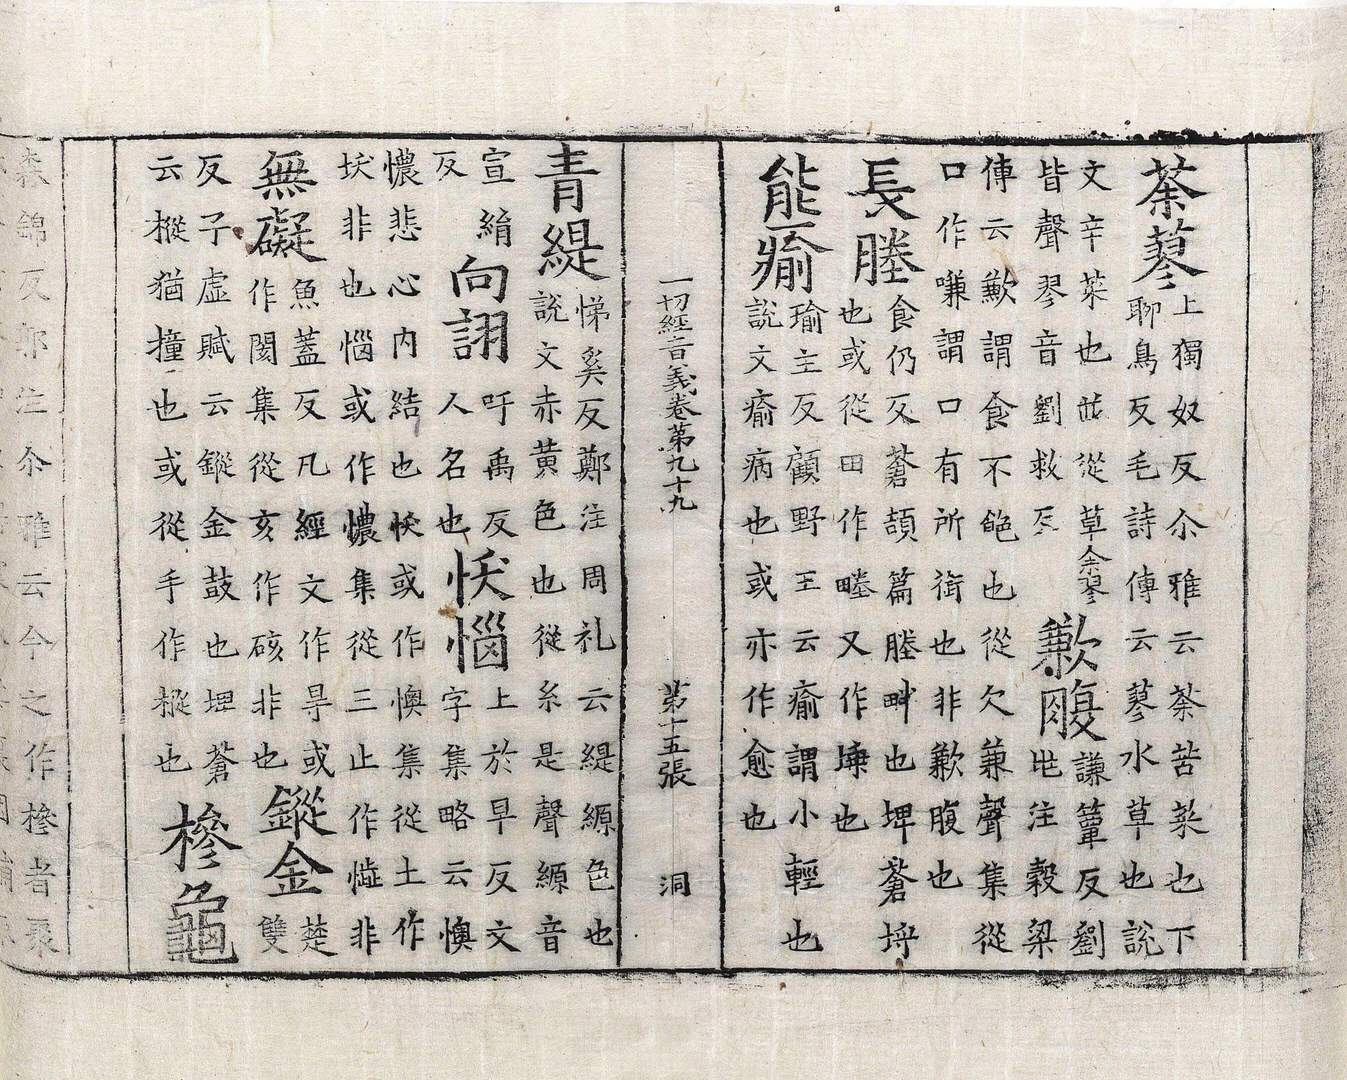 荼蓼
上獨奴反尒雅云荼苦菜也下
聊鳥反毛詩傳云蓼水草也說
文辛菜也並從草余翏
皆聲翏音劉救反
歉腹
謙簟反劉
兆注穀梁
傳云歉謂食不飽也從欠兼聲集從
口作嗛謂口有所銜也非歉腹也
長塍
食仍反蒼頡篇塍畔也埤蒼埒
也或從田作畻又作堘也
能瘉
瑜主反顧野王云瘉謂小輕也
說文瘉病也或亦作愈也
一切經音義卷第九十九
第十五張
洞
青緹
悌奚反鄭注周礼云緹縓色也
說文赤黃色也從糸是聲縓音
宣絹
反
向詡
吁禹反
人名也
懊惱
上於早反文
字集略云懊
憹悲心内結也或作懊集從土作
非也惱或作憹集從三止作非
無礙
魚蓋反凡經文作㝵或
作閡集從亥作硋非也
鏦金
楚
雙
反子虛賦云鏦金鼓也埤蒼
云摐猶撞也或從手作摐也
槮龜
森錦反郭注尒雅云今之作槮者聚